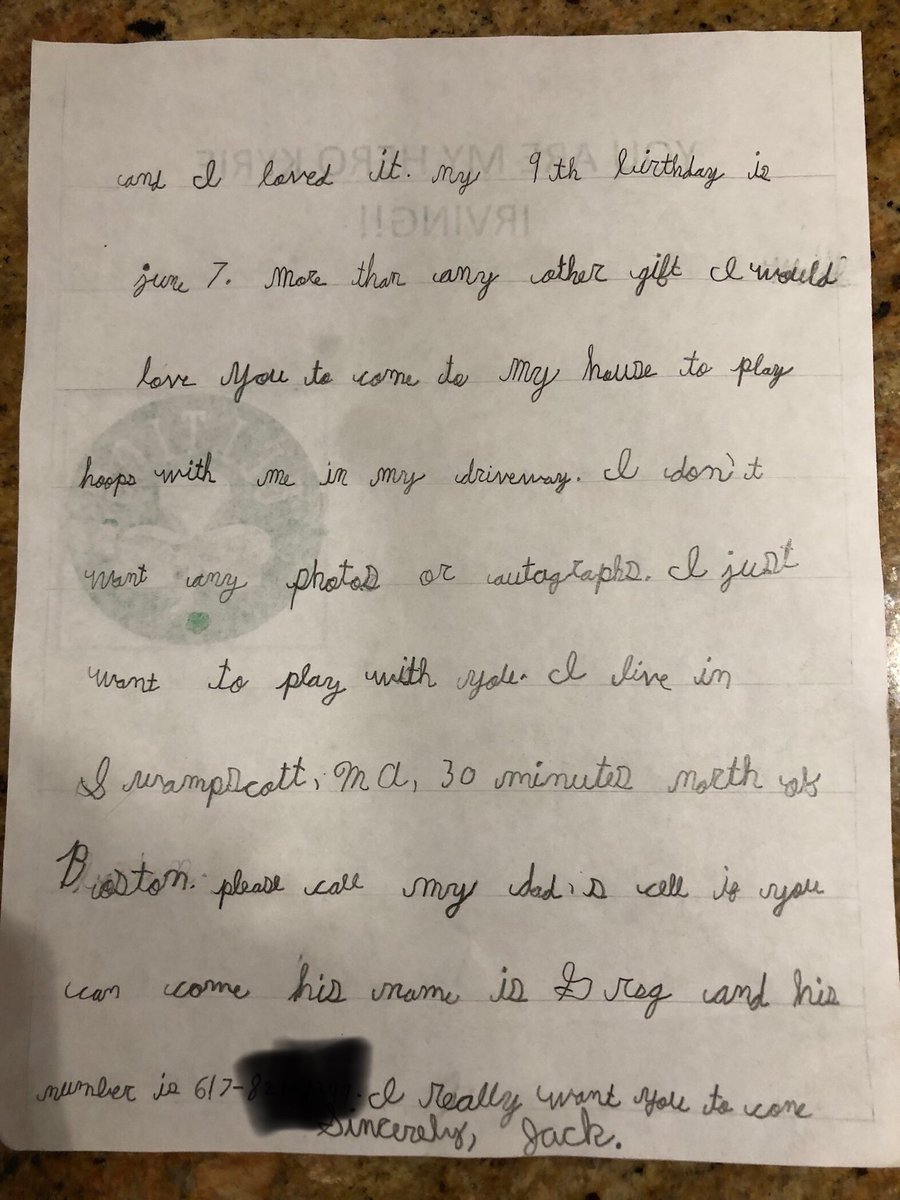 YOU ARE MY HERO KYRIE
IRVING!!
and I loved it. my 9th birthday is
june 7. More than any other gift I would
love you to come to my house to play
hoops with me in my driveway. I don't
want any photos or autographs. I just
want to play with you. I live in
Swampscott, MA, 30 minutes north of
Boston. please call my dad's cell if you
can come his name is Greg and his
number is 617-
I really want you to come
Sincerely, Jack.